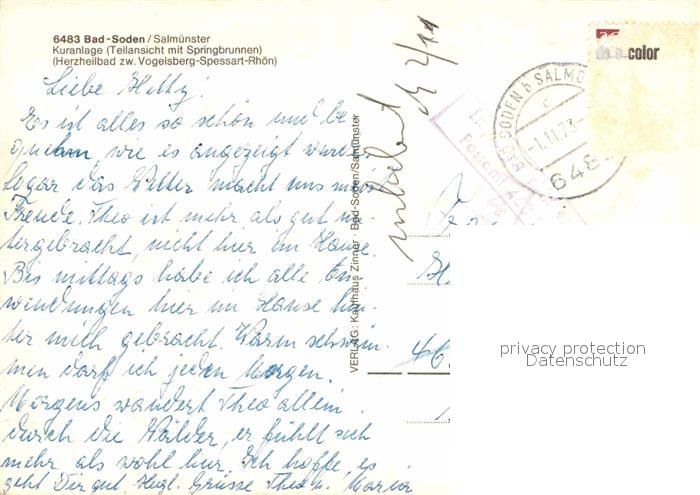 6483 Bad-Soden / Salmünster
Kuranlage (Teilansicht mit Springbrunnen)
(Herzheilbad zw. Vogelsberg-Spessart-Rhön)
Liebe Hetty!
Es ist alles so schön und be
quehm, wie es angezeigt wurde
Sogar das Wetter macht uns
Freude. Theo ist mehr als gut un-
tergebracht, nicht hier im Hause.
Bis mittags habe ich alle An
wendungen hier im Hause hin-
ter mich gebracht. Warm schwim-
men darf ich jeden Morgen.
Morgens wandert Theo allein
durch die Wälder, er fühlt sich
mehr als wohl hier. Ich hoffe, es
geht Dir gut. Herzl. Grüsse Theo u. Maria
VERLAG: Kaufhaus Zinner · Bad-Soden/Salmünster
unbekannt
2/11
BAD SODEN b SALMÜ
c
-1.11.73-
648
Postamt
color
46
privacy protection
Datenschutz